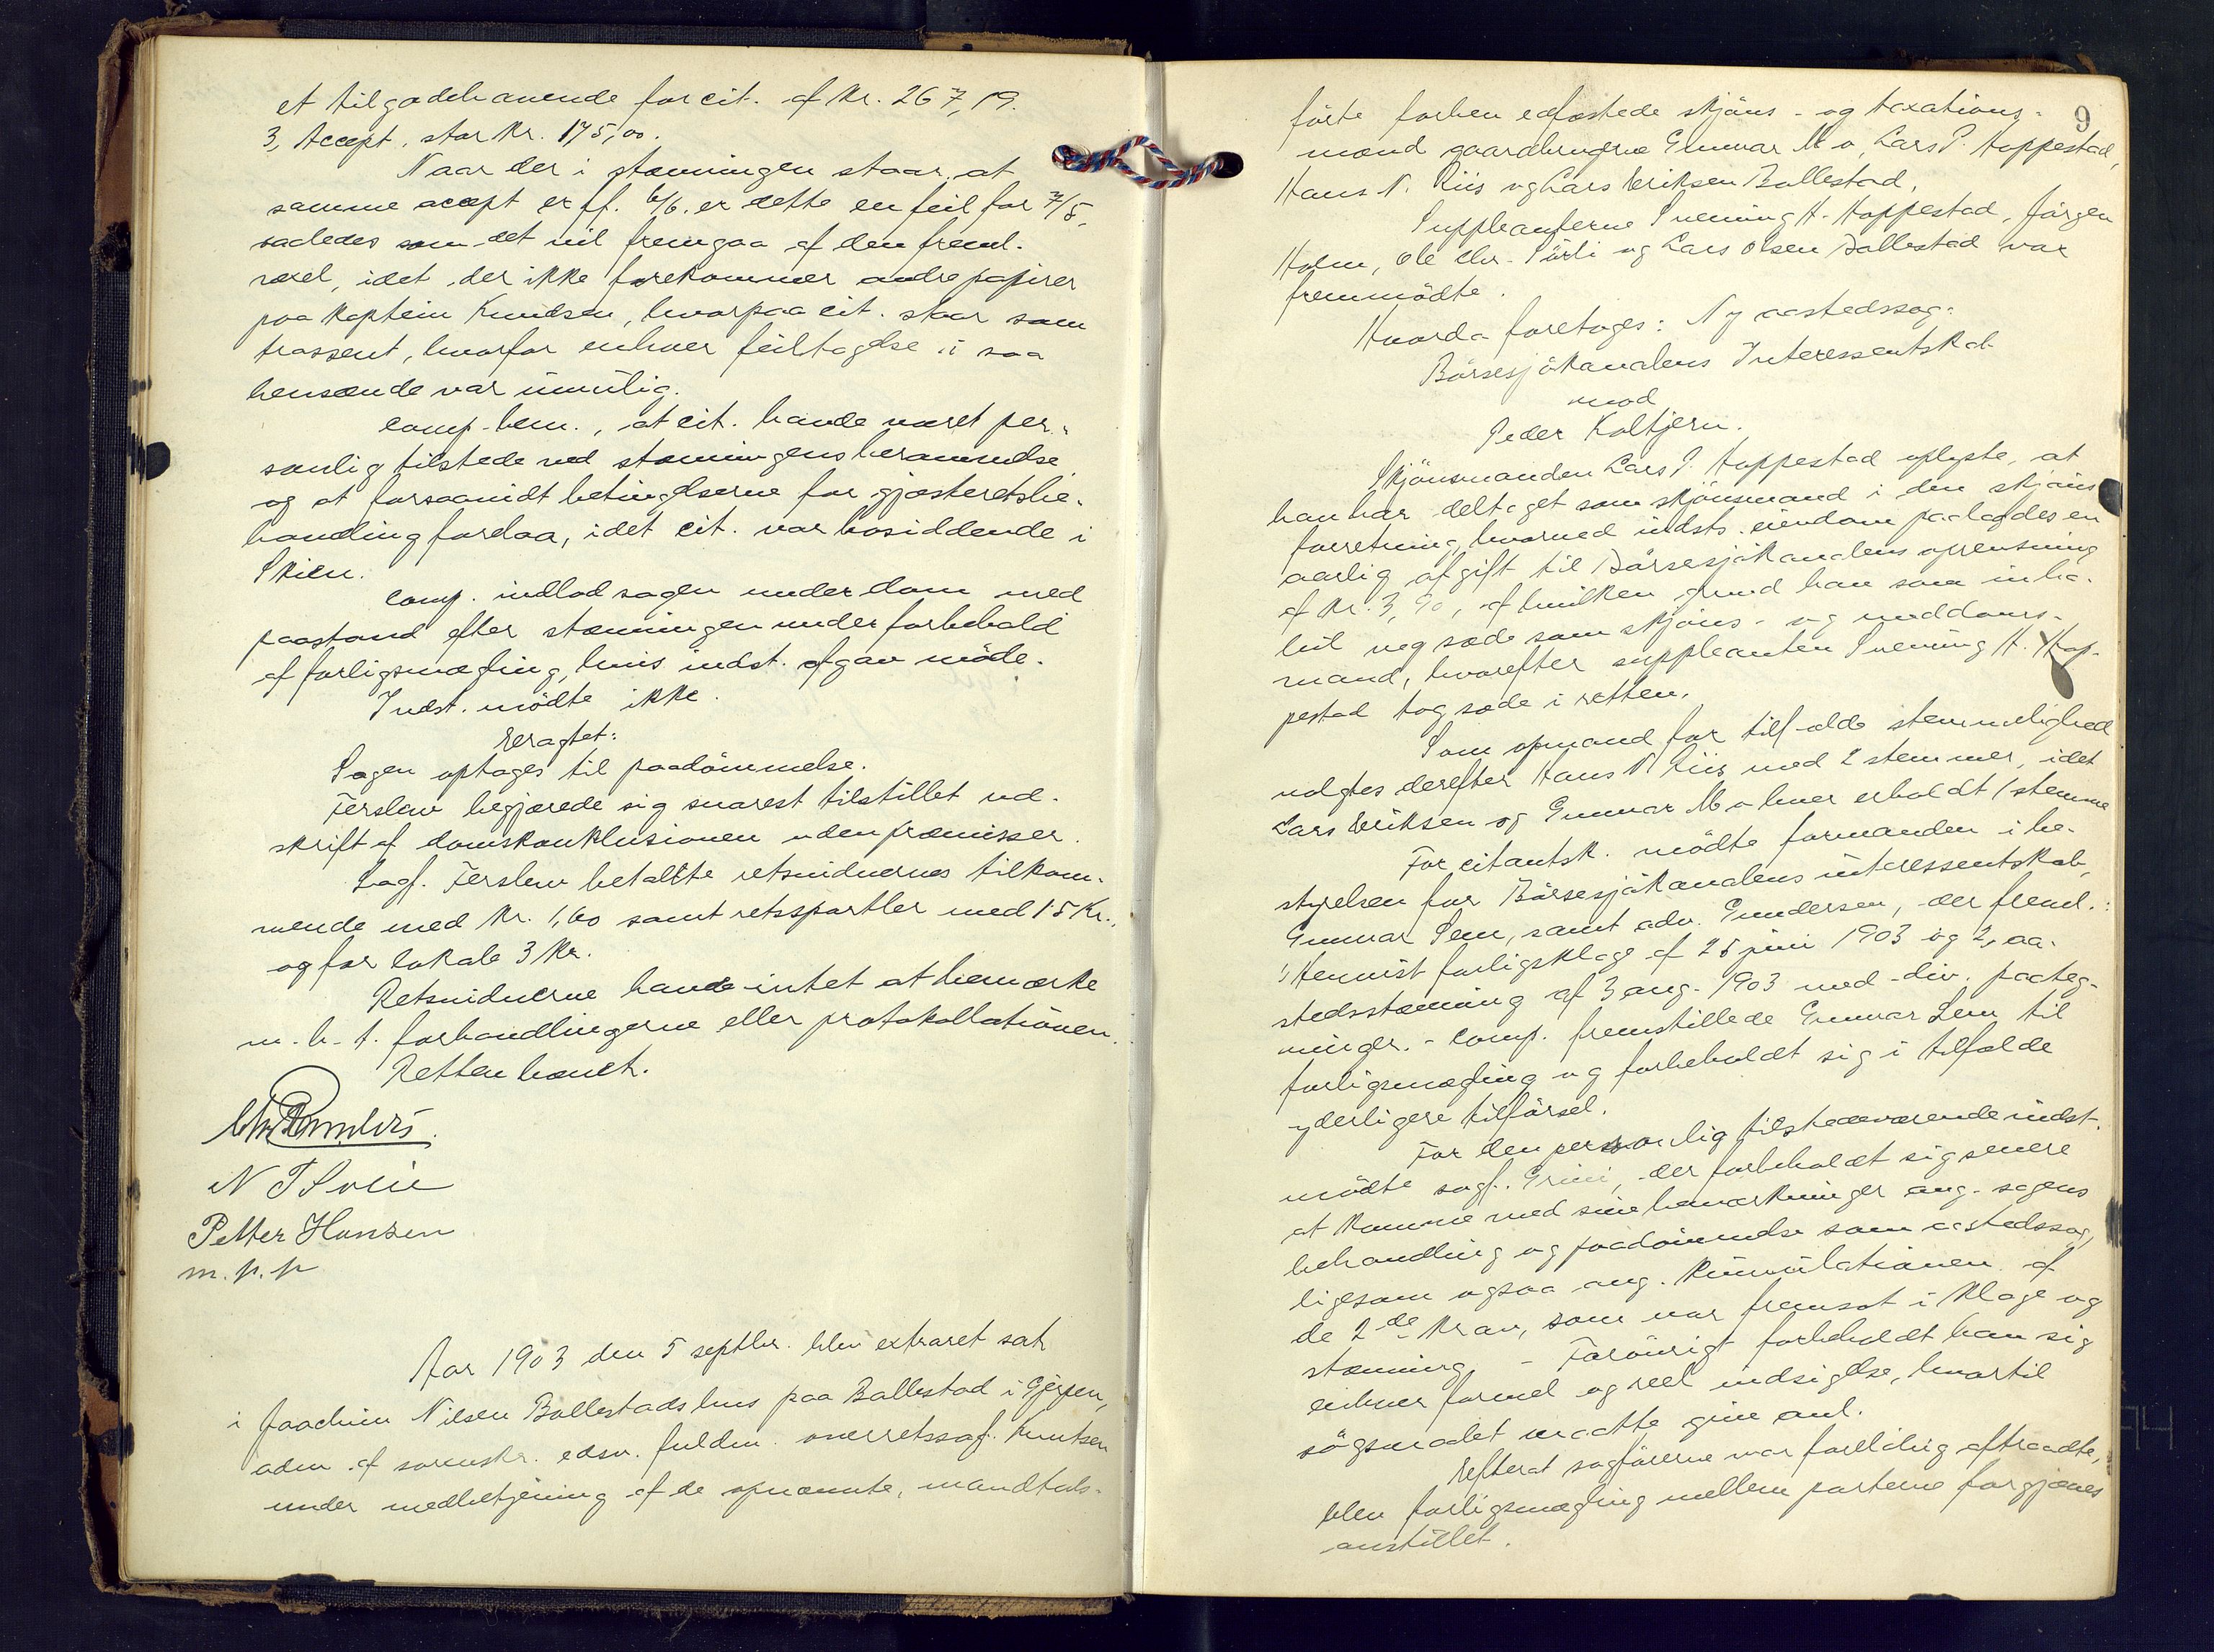 et tilgodehavende for cit. af kr. 267,19.
3, Accept, stor kr. 175,00.
Naar der i stævningen staar, at
samme accept er ff. 6/6. er dette en feil for 7/5,
saaledes som det vil fremgaa af den freml.
vexel, idet der ikke forekommer andre papirer
paa kaptein Knudsen, hvorpaa cit. staar som
trassent, hvorfor enhver feiltagelse i saa
henseende var umulig.
Comp. bem., at cit. havde været per-
sonlig tilstede ved stævningens berammelse
og at forsaavidt betingelserne for gjæsteretsbe-
handling forelaa, idet cit. var bosiddende i
Skien.
Comp. indlod sagen under dom med
paastand efter stævningen under forbehold
af forligsmægling, hvis indst. afgav møde.
Indst. mödte ikke.
Eragtet:
Sagen optages til paadömmelse.
Ferslew begjærede sig snarest tilstillet ud-
skrift af domskonklusionen uden præmisser.
Sagf. Ferslew betalte retsvidnernes tilkom-
mende med kr. 1,60 samt retssportler med 15 kr.,
og for lokale 3 kr.
Retsvidnerne havde intet at bemærke
m. h. t. forhandlingerne eller protokollationen.
Retten hævet.
Petter Hansen
m. p. p
Aar 1903 den 5 septbr. blev extraret sat
i Joachim Nilsen Ballestads hus paa Ballestad i Gjerpen,
adm. af sorenskr. edsv. fuldm. overretssagf. Knutsen
under medbetjening af de opnævnte, mandtals-
9
förte forhen edfæstede skjöns- og taxations-
mænd gaardbrugerne Gunnar Mo, Lars P. Hoppestad,
Hans N. Riis og Lars Eriksen Ballestad.
Suppleanterne Svenning H. Hoppestad, Jörgen
Holm, Ole Chr. Sörli og Lars Olsen Ballestad var
fremmödte.
Hvorda foretoges: Ny aastedssag:
Börsesjökanalens Interessentskab
mod
Peder Koltjern.
Skjönsmanden Lars P. Hoppestad oplyste, at
han har deltaget som skjönsmand i den skjöns
forretning, hvorved indsts. eiendom paalagdes en
aarlig afgift til Börsesjökanalens oprensning
af kr. 3,90, af hvilken grund han som inha-
bil veg sæde som skjöns- og meddoms-
mand, hvorefter suppleanten Svenning H. Hop-
pestad tog sæde i retten.
Som opmand for tilfælde stemmelighed
valgtes derefter Hans N. Riis med 2 stemmer, idet
Lars Eriksen og Gunnar Mo hver erholdt 1 stemme
For citantsk. mödte formanden i be-
styrelsen for Börsesjökanalens interessentskab,
Gunnar Sem, samt adv. Gundersen, der freml.:
1, Henvist forligsklage af 25 juni 1903 og 2, aa-
stedsstævning af 3 aug. 1903 med div. paateg-
ninger. - Comp. fremstillede Gunnar Sem til
forligsmægling og forbeholdt sig i tilfælde
yderligere tilförsel.
For den personlig tilstedeværende indst.
mödte sagf. Grini, der forbeholdt sig senere
at komme med sine bemærkninger ang. sagens
behandling og paadömmelse som aastedssag,
ligesom ogsaa ang. kumulationen af
de 2de krav, som var fremsat i klage og
stævning. - Forövrigt forbeholdt han sig
enhver formel og reel indsigelse, hvortil
sögsmalet maatte give anl.
Efterat sagförerne var foreløbig aftraadte,
blev forligsmægling mellem parterne forgjæves
anstillet.